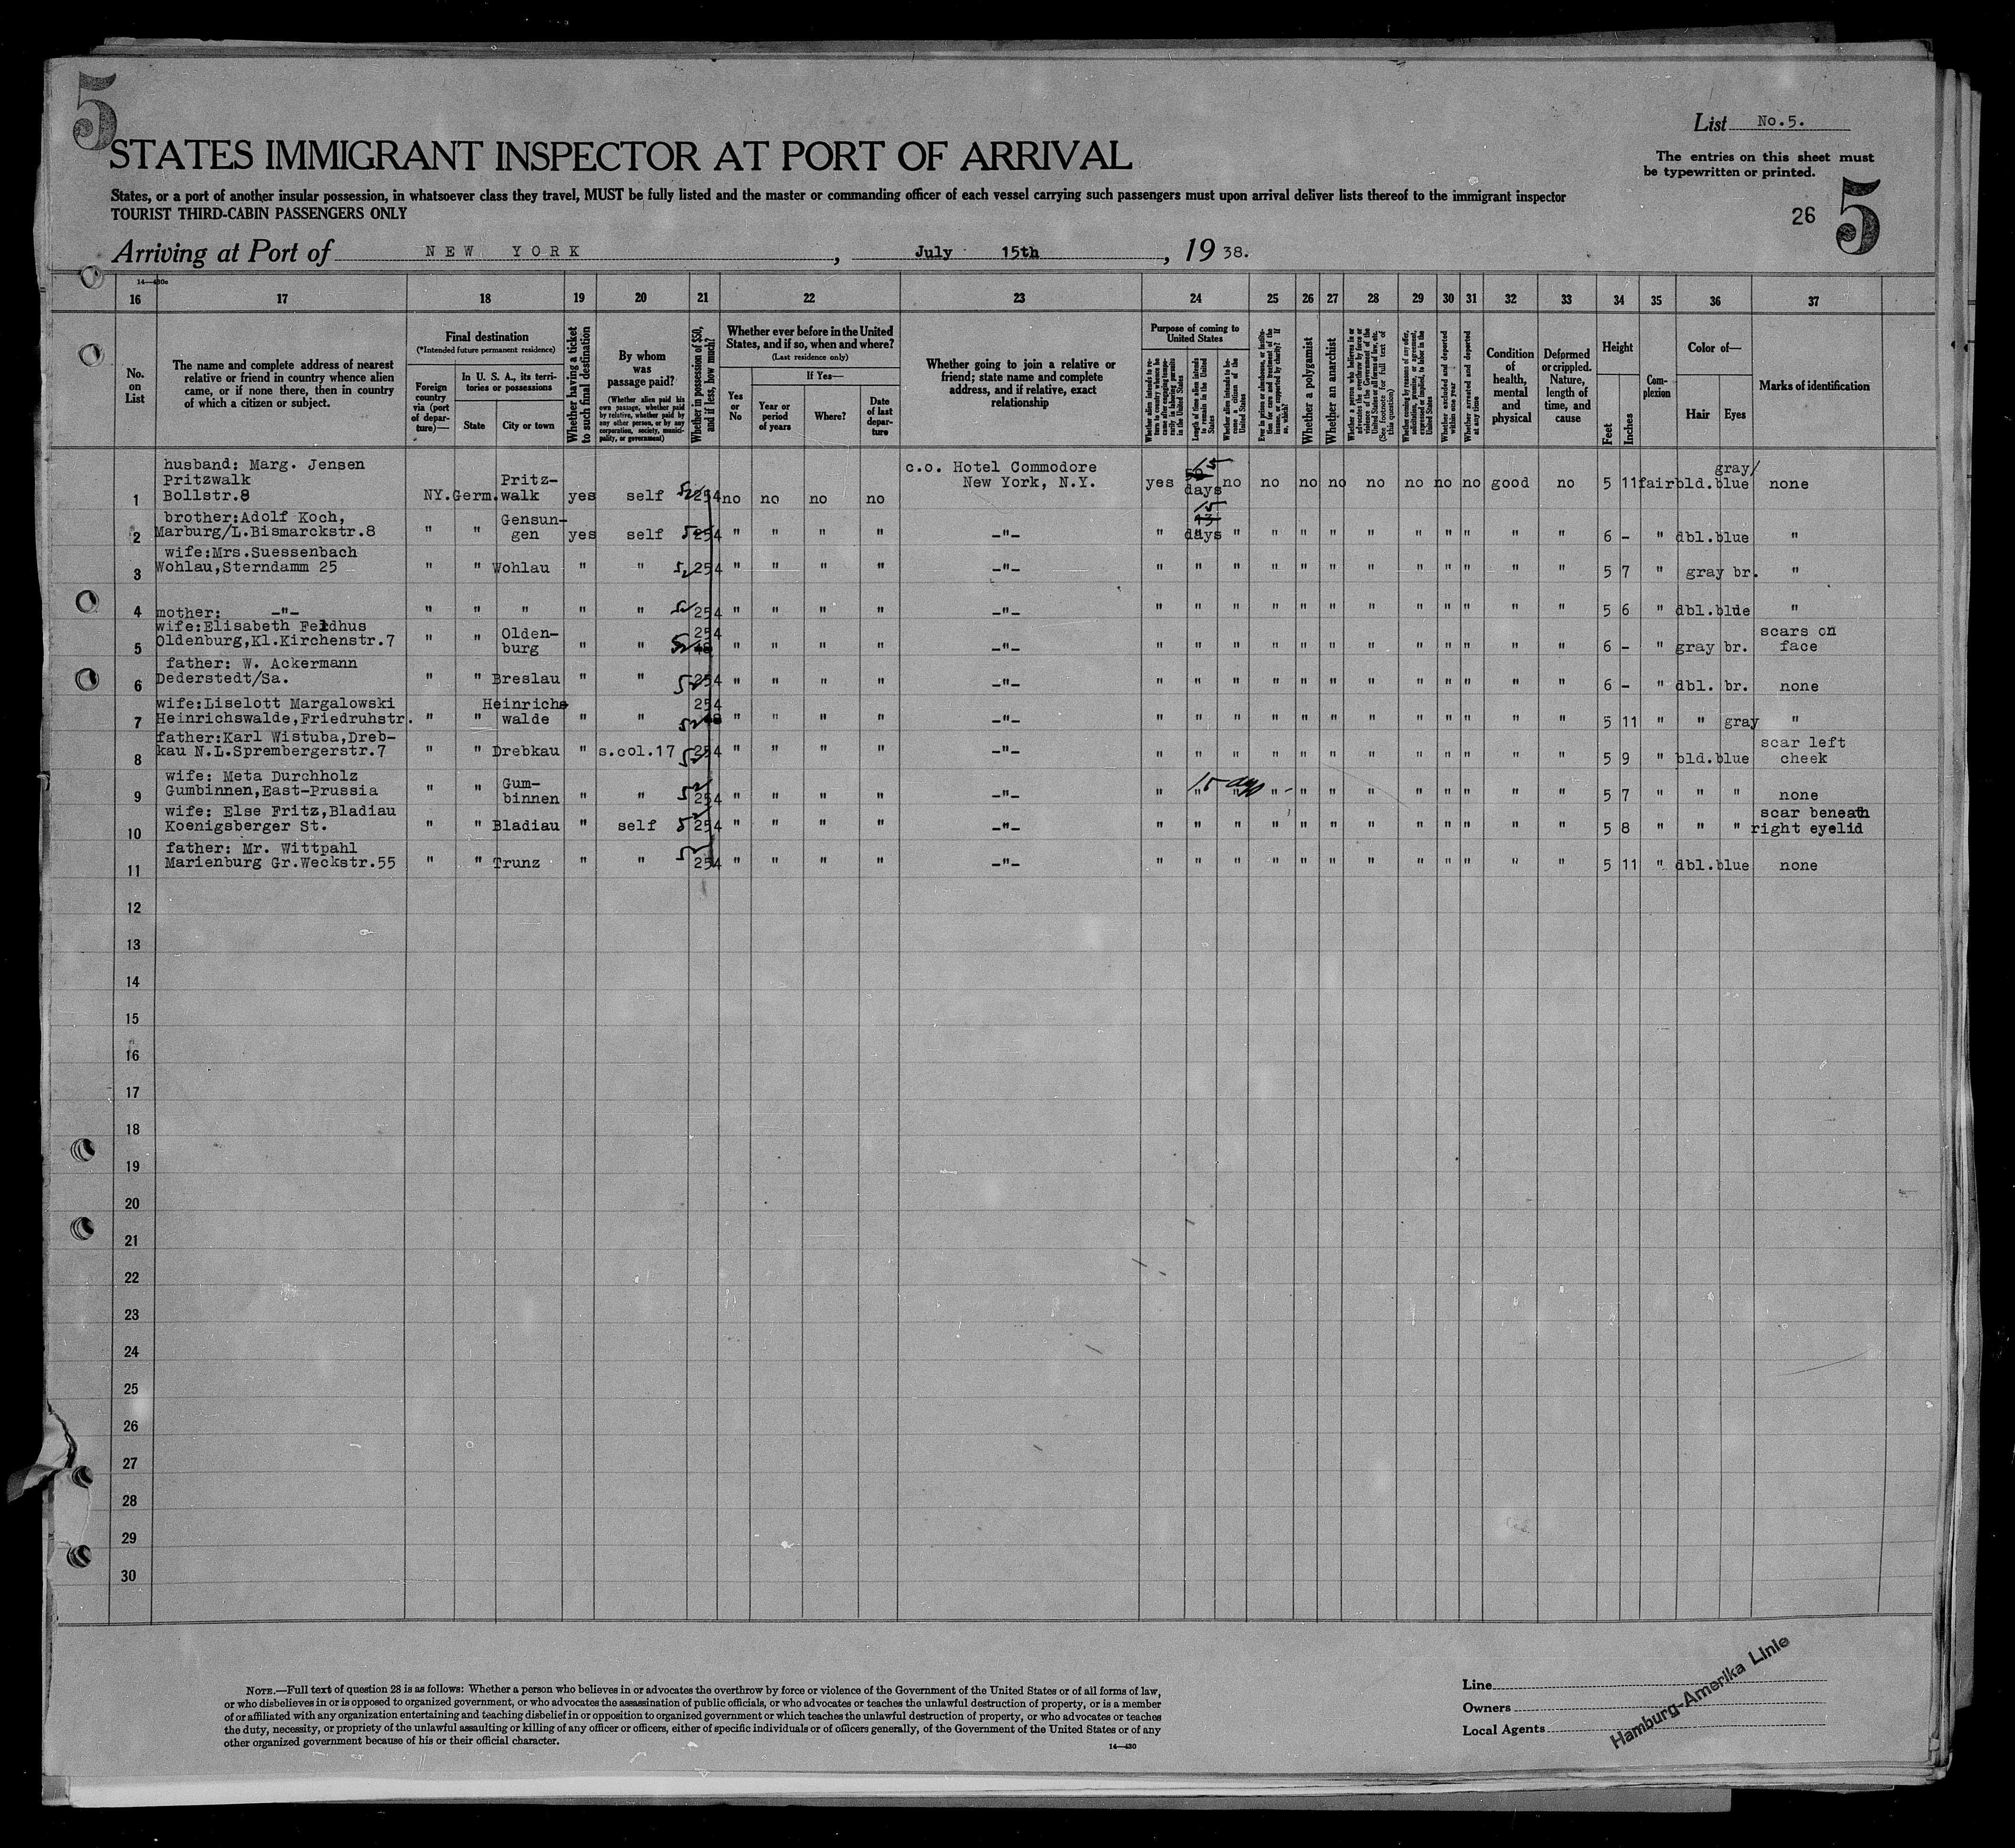 5
STATES IMMIGRANT INSPECTOR AT PORT OF ARRIVAL
List No.5.
The entries on this sheet must
be typewritten or printed.
States, or a port of another insular possession, in whatsoever class they travel, MUST be fully listed and the master or commanding officer of each vessel carrying such passengers must upon arrival deliver lists thereof to the immigrant inspector
TOURIST THIRD-CABIN PASSENGERS ONLY
26 5
Arriving at Port of NEW YORK, July 15th, 1938.
16 17 18 19 20 21 22 23 24 25 26 27 28 29 30 31 32 33 34 35 36 37
No. on List
The name and complete address of nearest relative or friend in country whence alien came, or if none there, then in country of which a citizen or subject.
Final destination
(*Intended future permanent residence)
Foreign country via (port of departure)—
In U. S. A., its territories or possessions
State
City or town
Whether having a ticket to such final destination
By whom was passage paid?
(Whether alien paid his own passage, whether paid by relative, whether paid by any other person, or by any corporation, society, municipality, or government)
Whether in possession of $50, and if less, how much?
Whether ever before in the United States, and if so, when and where?
(Last residence only)
Yes or No
If Yes—
Year or period of years
Where?
Date of last departure
Whether going to join a relative or friend; state name and complete address, and if relative, exact relationship
Purpose of coming to United States
Length of time alien intends to remain in the United States
Whether alien intends to become a citizen of the United States
Whether a polygamist
Whether an anarchist
Whether excluded and deported within one year
Whether arrested and deported at any time
Condition of health, mental and physical
Deformed or crippled. Nature, length of time, and cause
Height
Feet
Inches
Complexion
Color of—
Hair
Eyes
Marks of identification
1 husband: Marg. Jensen
Pritzwalk
Bollstr.8 NY. Germ. Pritz-walk yes self 254 no no no no c.o. Hotel Commodore New York, N.Y. yes days no no no no no no no no good no 5 11 fair bld. gray/blue none
2 brother:Adolf Koch,
Marburg/L.Bismarckstr.8 " " Gensun-gen yes self 254 " " " " -"- " days " " " " " " " " " " 6 - " dbl. blue "
3 wife:Mrs.Suessenbach
Wohlau,Sterndamm 25 " " Wohlau " " 254 " " " " -"- " " " " " " " " " " " " 5 7 " gray br. "
4 mother: -"- " " " " " 254 " " " " -"- " " " " " " " " " " " " 5 6 " dbl. blue "
5 wife:Elisabeth Feldhus
Oldenburg,Kl.Kirchenstr.7 " " Olden-burg " " 254 " " " " -"- " " " " " " " " " " " " 6 - " gray br. scars on face
6 father: W. Ackermann
Dederstedt/Sa. " " Breslau " " 254 " " " " -"- " " " " " " " " " " " " 6 - " dbl. br. none
7 wife:Liselott Margalowski
Heinrichswalde,Friedruhstr. " " Heinrichs walde " " 254 " " " " -"- " " " " " " " " " " " " 5 11 " " gray "
8 father:Karl Wistuba,Dreb-
kau N.L.Sprembergerstr.7 " " Drebkau " s.col.17 254 " " " " -"- " " " " " " " " " " " " 5 9 " bld. blue scar left cheek
9 wife: Meta Durchholz
Gumbinnen,East-Prussia " " Gum-binnen " " 254 " " " " -"- " 15 days " " " " " " " " " " " 5 7 " " " none
10 wife: Else Fritz,Bladiau
Koenigsberger St. " " Bladiau " self 254 " " " " -"- " " " " " " " " " " " " 5 8 " " " scar beneath right eyelid
11 father: Mr. Wittpahl
Marienburg Gr.Weckstr.55 " " Trunz " " 254 " " " " -"- " " " " " " " " " " " " 5 11 " dbl. blue none
12
13
14
15
16
17
18
19
20
21
22
23
24
25
26
27
28
29
30
NOTE.—Full text of question 28 is as follows: Whether a person who believes in or advocates the overthrow by force or violence of the Government of the United States or of all forms of law,
or who disbelieves in or is opposed to organized government, or who advocates the assassination of public officials, or who advocates or teaches the unlawful destruction of property, or is a member
of or affiliated with any organization entertaining and teaching disbelief in or opposition to organized government or which teaches the unlawful destruction of property, or who advocates or teaches
the duty, necessity, or propriety of the unlawful assaulting or killing of any officer or officers, either of specific individuals or of officers generally, of the Government of the United States or of any
other organized government because of his or their official character.
14—430
Line
Owners
Local Agents
Hamburg-Amerika Linie